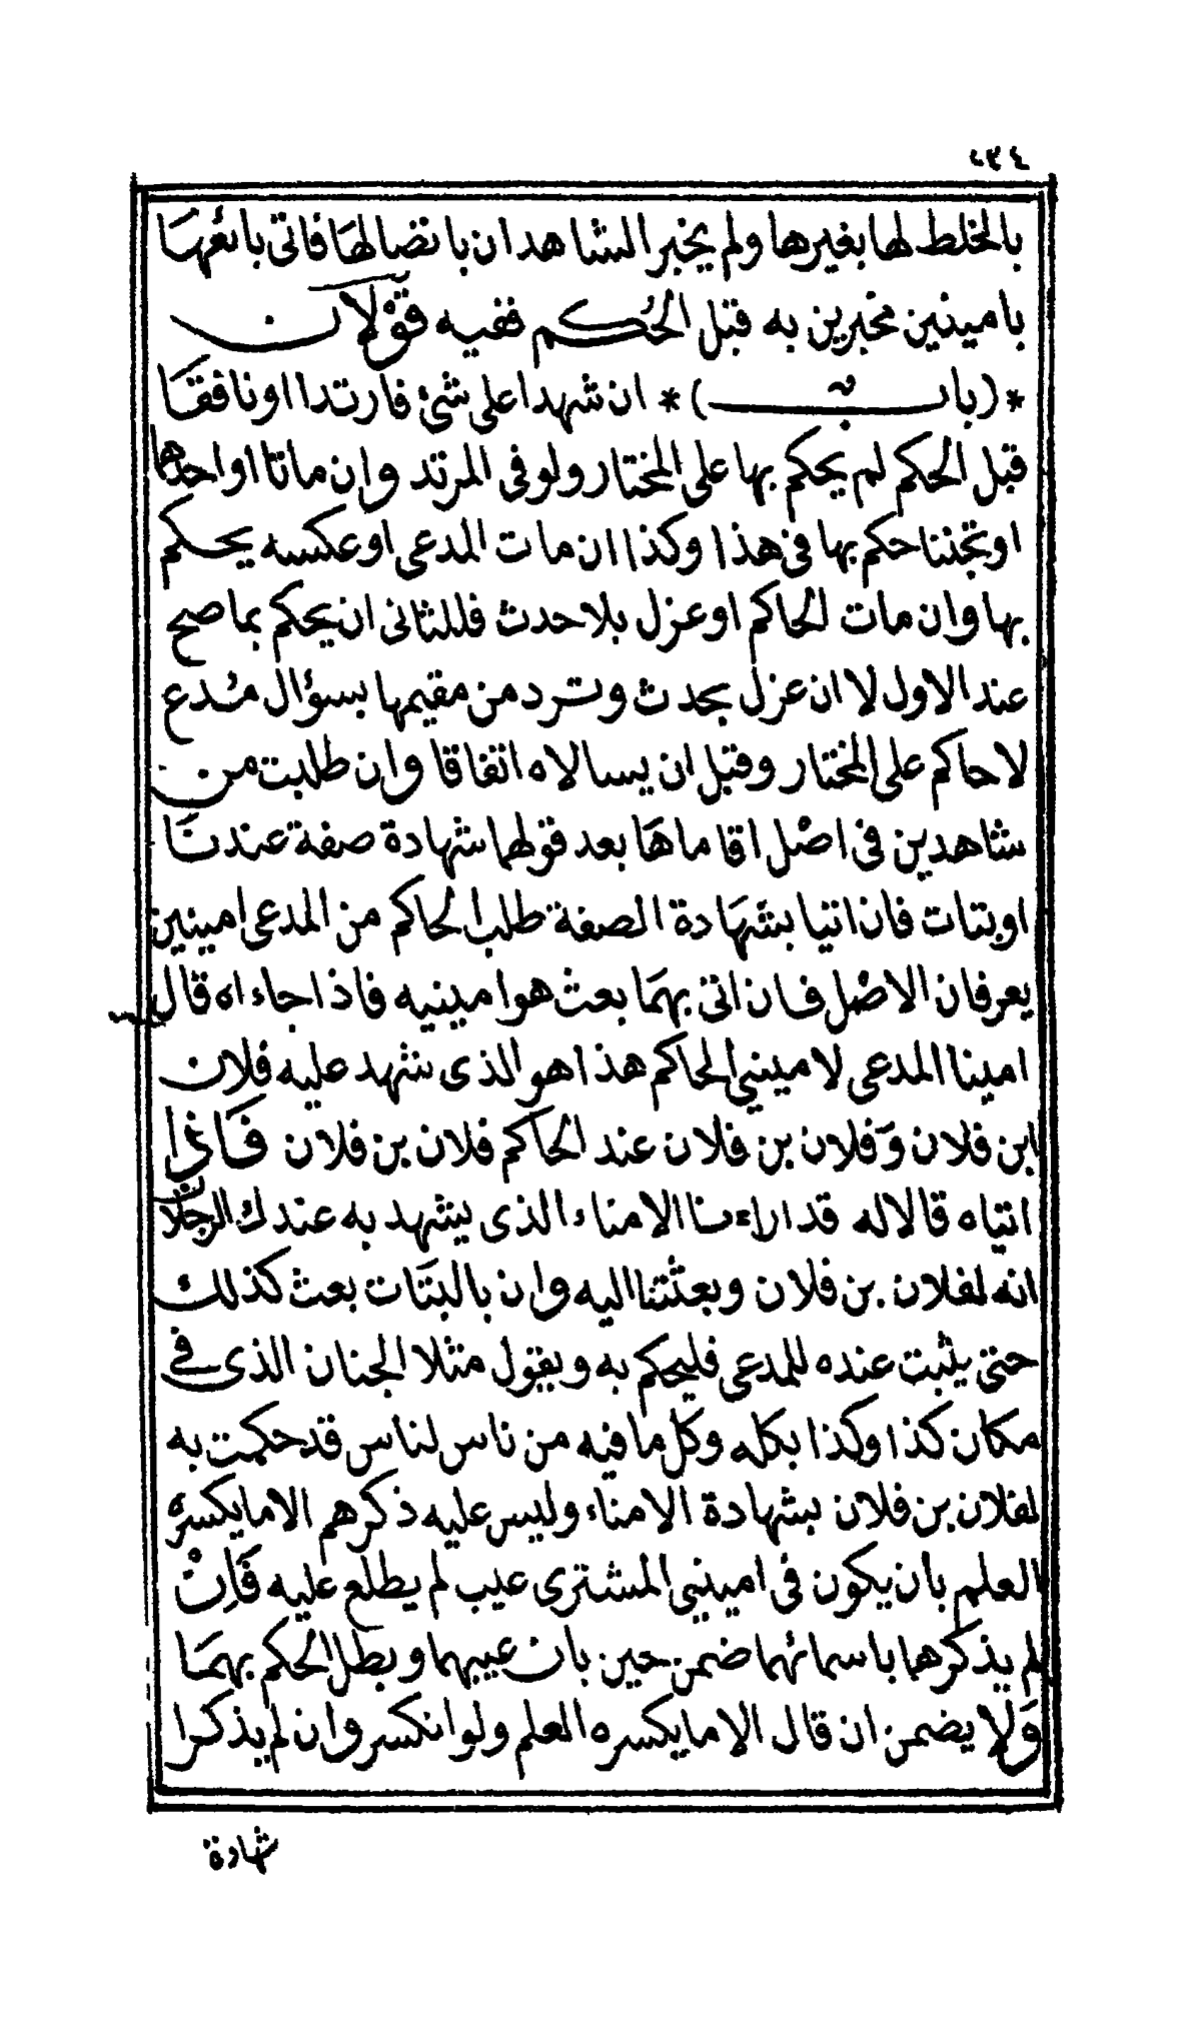 ٠٣٤
بالخلط لها بغيرها ولم يخبر الشاهدان باتصالها فاتى بائعها
بامينين مخبرين به قبل الحكم ففيه قولان
*(باب)* ان شهدا على شئ فارتدا او نافقا
قبل الحكم لم يحكم بها على المختار ولو فى المرتد وان ماتا او احدهما
او تجننا حكم بها فى هذا وكذا ان مات المدعى او عكسه يحكم
بها وان مات الحاكم او عزل بلا حدث فللثانى ان يحكم بما صح
عند الاول لا ان عزل بحدث وترد من مقيمها بسؤال مدع
لا حاكم على المختار وقبل ان يسالاه اتفاقا وان طلبت من
شاهدين فى اصل اقاماها بعد قولهما شهادة صفة عندنا
او بتات فان اتيا بشهادة الصفة طلب الحاكم من المدعى امينين
يعرفان الاصل فان اتى بهما بعث هو امينيه فاذا جاءاه قال
امينا المدعى لامينى الحاكم هذا هو الذى شهد عليه فلان
ابن فلان وفلان بن فلان عند الحاكم فلان بن فلان فاذا
اتياه قالا له قد اراءنا الامناء الذى يشهد به عندك الرجلان
انه لفلان بن فلان وبعثتنا اليه وان بالبتات بعث كذلك
حتى يثبت عنده للمدعى فليحكم به ويقول مثلا الجنان الذى فى
مكان كذا وكذا بكله وكل ما فيه من ناس لناس قد حكمت به
لفلان بن فلان بشهادة الامناء وليس عليه ذكرهم الا ما يكسره
العلم بان يكون فى امينى المشترى عيب لم يطلع عليه فان
لم يذكرهما باسمائهما ضمن حين بان عيبهما وبطل الحكم بهما
ولا يضمن ان قال الا ما يكسره العلم ولو انكسر وان لم يذكرا
شهادة